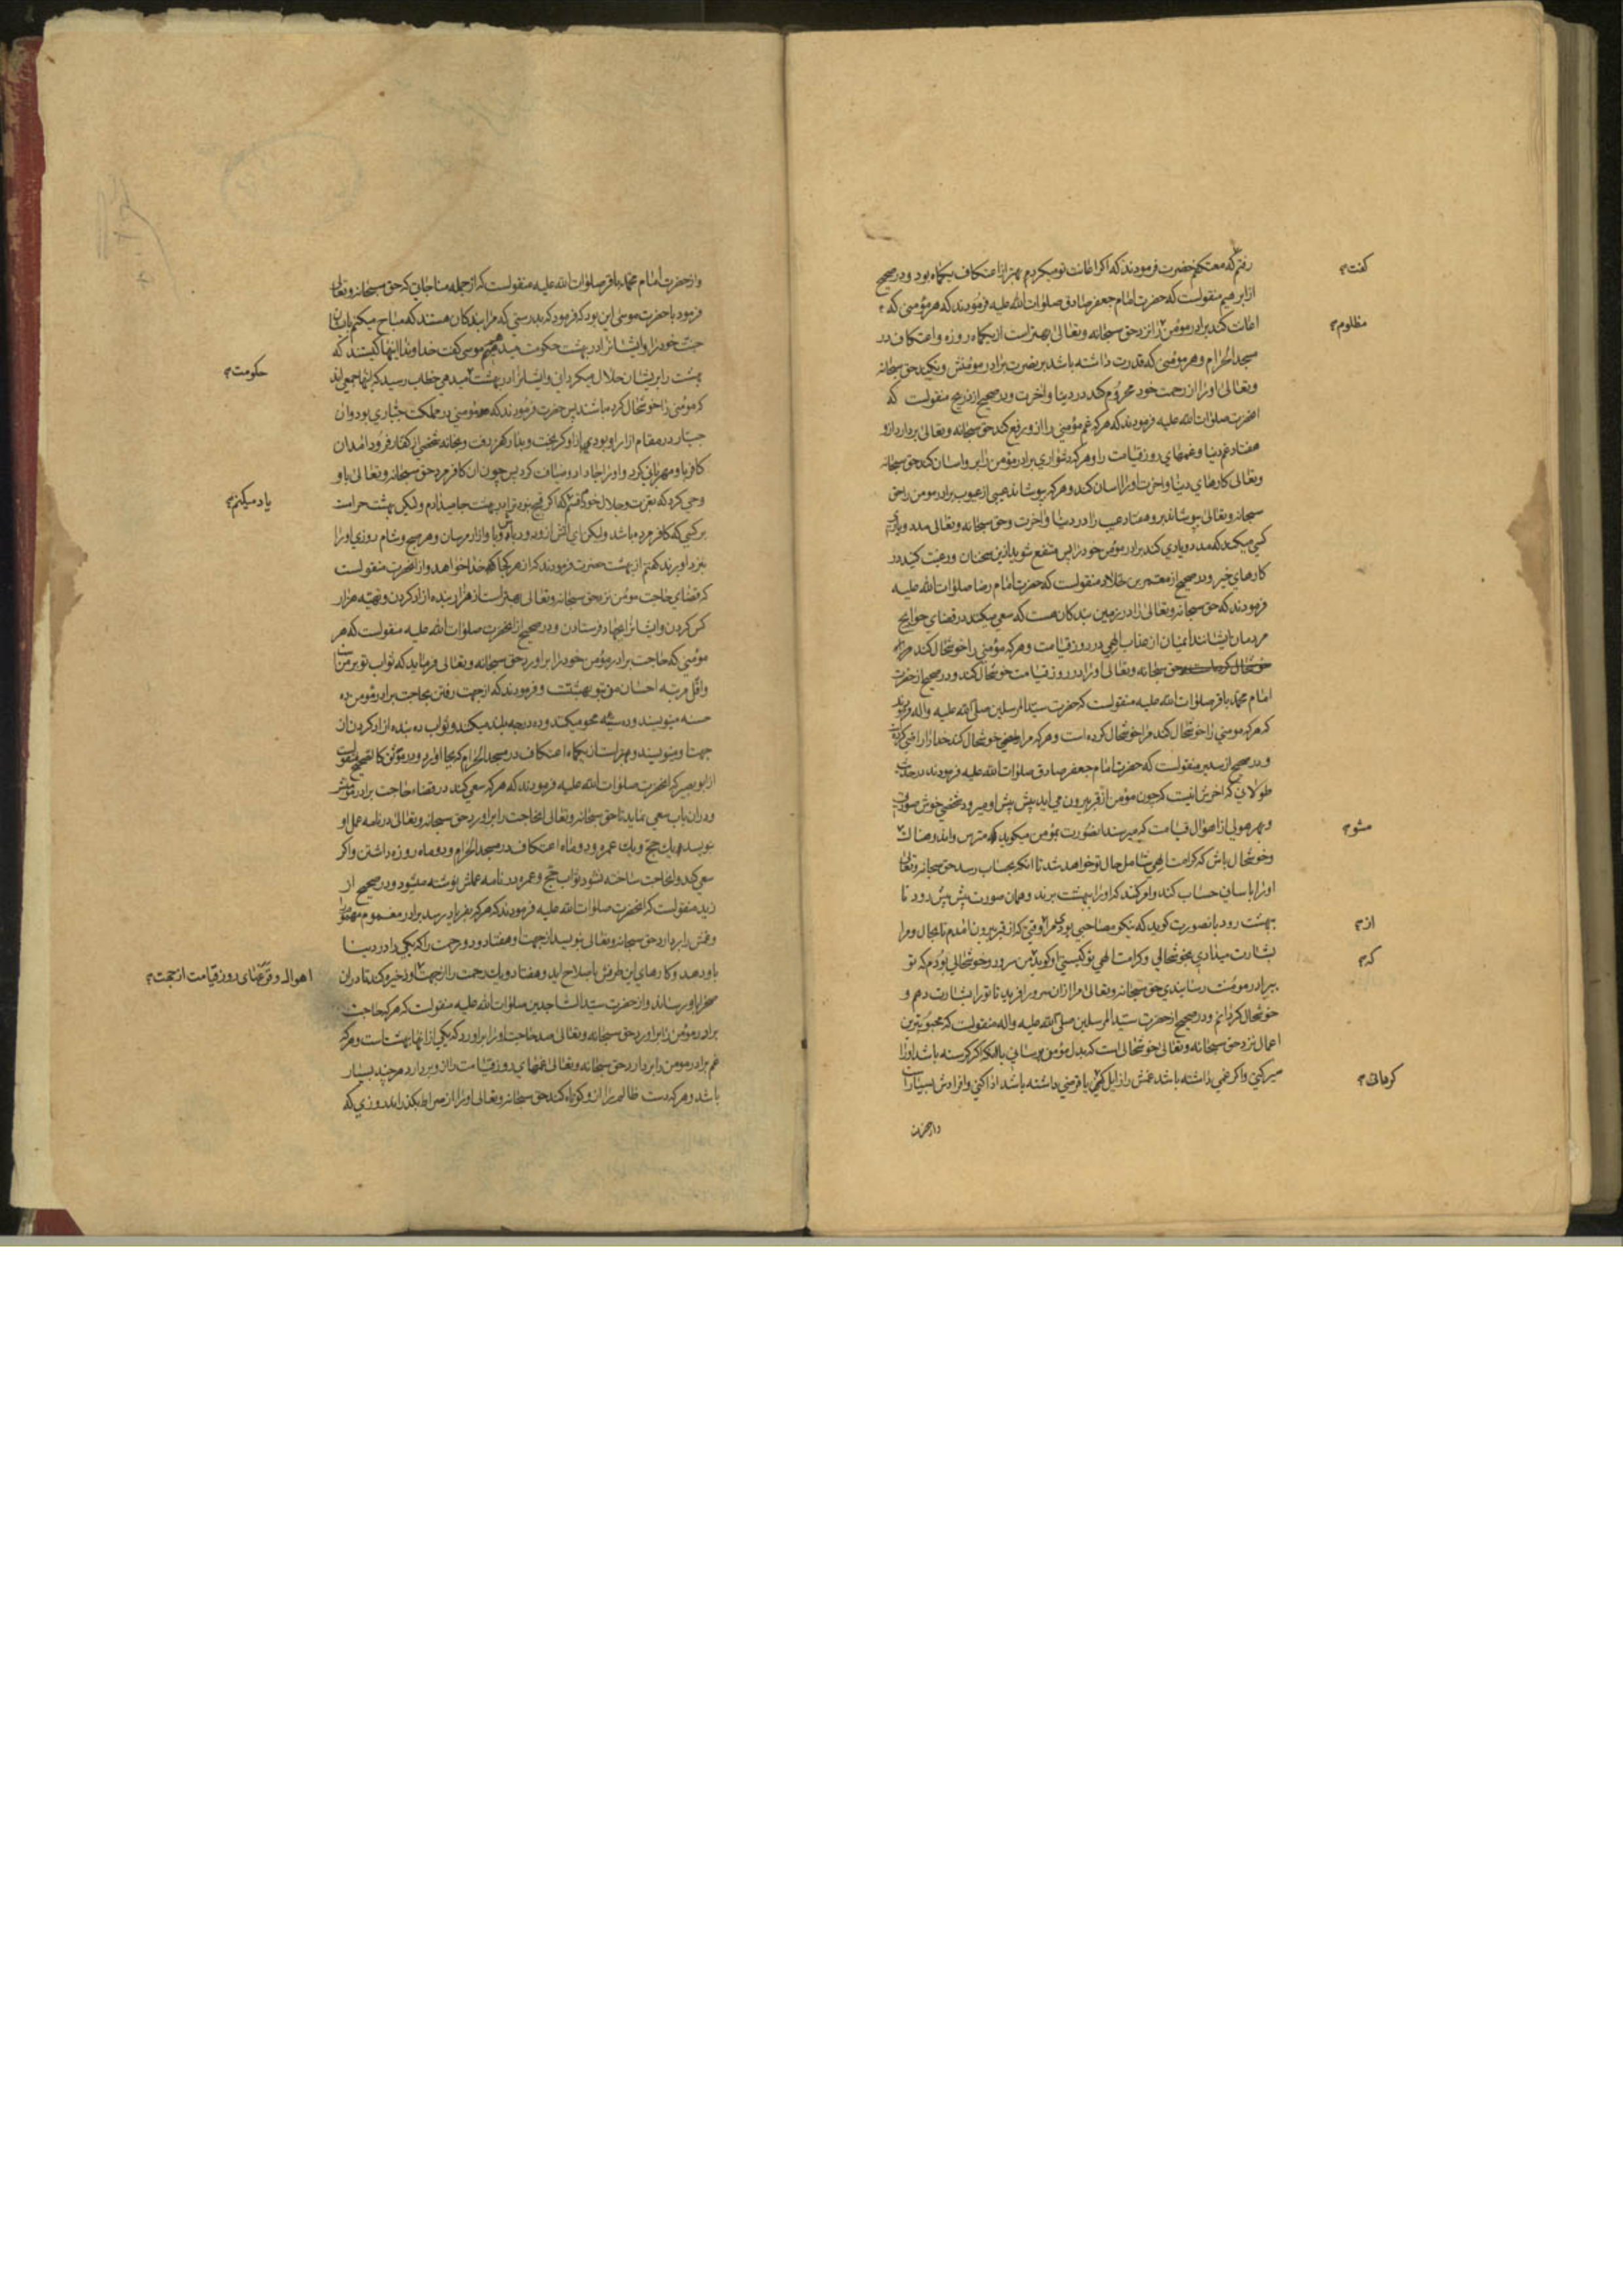 رفتم که معتکفم حضرت فرمودند که اکر اعانت تو میکردم بهتر از اعتکاف یکماه بود و در صحیح
کفت
از ابرهیم منقولست که حضرت امام جعفر صادق صلوات الله علیه فرمودند که هر مؤمنی که
مظلوم
اعانت کند برادر مؤمن را نزد حق سبحانه وتعالی بهتر است از یکماه روزه و اعتکاف در
مسجد الحرام و هر مؤمنی که قدرت داشته باشد بر نصرت برادر مؤمنش و نکند حق سبحانه
وتعالی او را از رحمت خود محروم کند در دنیا و اخرت و در صحیح از ذریح منقولست که
انحضرت صلوات الله علیه فرمودند که هر که غم مؤمنی را ازو رفع کند حق سبحانه وتعالی بردارد ازو
هفتاد غم دنیا و غمهای روز قیامت را و هر که دشواری برادر مؤمن را برو اسان کند حق سبحانه
وتعالی کارهای دنیا و اخرت او را اسان کند و هر که بپوشاند عیبی از عیوب برادر مومن را حق
سبحانه وتعالی بپوشاند برو هفتاد عیب را در دنیا و اخرت و حق سبحانه وتعالی مدد و یاری
کسی میکند که مدد و یاری کند برادر مؤمن خود را پس منتفع شوید ازین سخنان و رغبت کنید در
کارهای خیر و در صحیح از معمر بن خلاد منقولست که حضرت امام رضا صلوات الله علیه
فرمودند که حق سبحانه وتعالی را در زمین بندکان هست که سعی میکنند در قضای حوایج
مردمان ایشانند ایمنان از عذاب الهی در روز قیامت و هر که مؤمنی را خوشحال کند
حق سبحانه وتعالی او را در روز قیامت خوشحال کند و در صحیح از حضرت
امام محمد باقر صلوات الله علیه منقولست که حضرت سید المرسلین صلی الله علیه واله فرمودند
که هر که مومنی را خوشحال کند مرا خوشحال کرده است و هر که مرا خوشحال کند خدا را راضی کرده
و در صحیح از سدیر منقولست که حضرت امام جعفر صادق صلوات الله علیه فرمودند در حدیث
طولانی که اخرش اینست که چون مؤمن از قبر بیرون می اید پیش پیش او میرود شخصی خوش صورت
و بهر هولی از اهوال قیامت که میرسد انصورت بمؤمن میکوید که مترس و اندوهناک
مشو
وخوشحال باش که کرامت الهی شامل حال تو خواهد شد تا انکه بحساب رسد حق سبحانه وتعالی
او را باسانی حساب کند و امر کند که او را ببهشت برند و همان صورت پیش پیش رود تا
ببهشت رود بانصورت کوید که نیکو مصاحبی بودی مرا وقتی که از قبر بیرون امدم تا بحال و مرا
از
بشارت میدادی بخوشحالی و کرامت الهی تو کیستی او کوید من سرور و خوشحالی بودم که تو
که
ببرادر مومنت رسانیدی حق سبحانه وتعالی مرا ازان سرور افرید تا تو را بشارت دهم و
خوشحال کردانم و در صحیح از حضرت سید المرسلین صلی الله علیه واله منقولست که محبوبترین
اعمال نزد حق سبحانه وتعالی خوشحالی است که بدل مؤمن برسانی بانکه اکر کرسنه باشد او را
سیر کنی و اکر غمی داشته باشد غمش را زایل کنی یا قرضی داشته باشد ادا کنی و افرادش بسیار است
واز حضرت امام محمد باقر صلوات الله علیه منقولست که از جمله مناجاتی که حق سبحانه وتعالی
فرمود با حضرت موسی این بود که فرمود که بدرستی که مرا بندکان هستند که مباح میکنم بایشان
جنت خود را و ایشانرا در بهشت حکومت میدهم موسی کفت خداوندا اینها کیستند که
بهشت را بریشان حلال میکردانی و ایشانرا در بهشت میدهی خطاب رسید که اینها جمعی اند
حکومت
که مؤمنی را خوشحال کرده باشند پس حضرت فرمودند که مؤمنی در مملکت جباری بود و ان
جبار در مقام ازار او بود پس ازو کریخت و بدار کفر رفت و بخانه شخصی از کفار فرود امد ان
کافر با او مهربانی کرد و او را جا داد و ضیافت کرد پس چون ان کافر مرد حق سبحانه وتعالی باو
وحی کرد که بعزت و جلال خودم که اکر بود ترا در بهشت جا میدادم ولیکن بهشت حرام است
یاد میکنم
بر کسی که کافر مرده باشد ولیکن ای اتش ازو دور باش و او را ازار مرسان و هر صبح و شام روزی او را
بنزد او برند کفتم از بهشت حضرت فرمودند که از هر کجا که خدا خواهد و از انحضرت منقولست
که قضای حاجت مومن نزد حق سبحانه وتعالی بهتر است از هزار بنده ازاد کردن و تهیه هزار
کس کردن و ایشانرا بجهاد فرستادن و در صحیح از انحضرت صلوات الله علیه منقولست که هر
مؤمنی که حاجت برادر مؤمن خود را براورد حق سبحانه وتعالی فرماید که ثواب تو بر منست
و اقل مرتبه احسان من بتو بهشتست و فرمودند که از جهت رفتن بحاجت برادر مؤمن ده
حسنه مینویسند و ده سیئه محو میکنند و ده درجه بلند میکنند و ثواب ده بنده ازاد کردن از
جهت او مینویسند و بهتر است از یکماه اعتکاف در مسجد الحرام که بجا اورد و در موثق کالصحیح منقولست
از ابو بصیر که انحضرت صلوات الله علیه فرمودند که هر که سعی کند در قضاء حاجت برادر مومنش
و دران باب سعی نماید تا حق سبحانه وتعالی انحاجت را براورد حق سبحانه وتعالی در نامه عمل او
بنویسد یک حج و یک عمره و دو ماه اعتکاف در مسجد الحرام و دو ماه روزه داشتن و اکر
سعی کند و انحاجت ساخته نشود ثواب حج و عمره در نامه عملش نوشته میشود و در صحیح از
زید منقولست که انحضرت صلوات الله علیه فرمودند که هر که بفریاد رسد برادر مغموم
و غمش را بردارد حق سبحانه وتعالی بنویسد از جهت او هفتاد و دو رحمت را که یکی را در دنیا
باو دهد و کارهای این طرفش باصلاح اید و هفتاد و یک رحمت را از جهت او ذخیره کند تا دران
اهوال و فزعهای روز قیامت از جهت
صحرا باو رساند و از حضرت سید الساجدین صلوات الله علیه منقولست که هر که حاجت
برادر مؤمن را براورد حق سبحانه وتعالی صد حاجت او را براورد که یکی از انها بهشت است و هر که
غم برادر مومن را بردارد حق سبحانه وتعالی غمهای روز قیامت را ازو بردارد هر چند بسیار
باشد و هر که دست ظالم را ازو کوتاه کند حق سبحانه وتعالی او را از صراط بکذراند روزی که